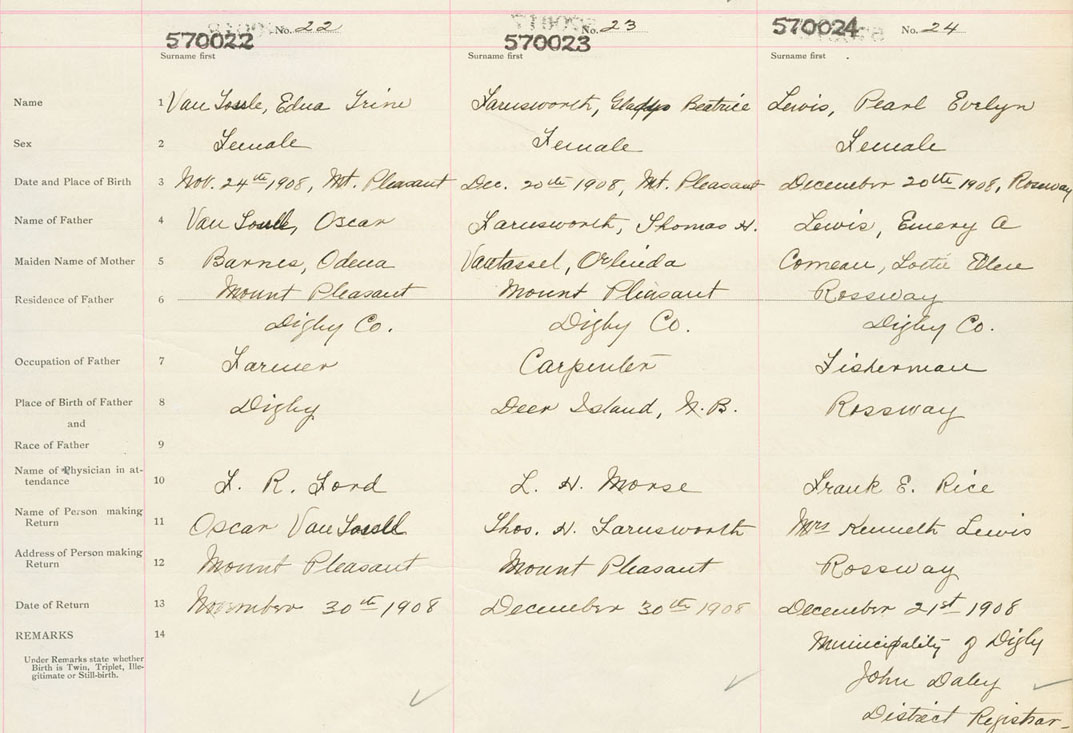 No. 22 No. 23 No. 24
570022 570023 570024
Surname first Surname first Surname first
Name 1 Van Edna Farnsworth, Gladys Beatrice Lewis, Pearl Evelyn
Sex 2 Female Female Female
Date and Place of Birth 3 Nov. 24th 1908, Mt. Pleasant Dec. 20th 1908, Mt. Pleasant December 20th 1908, Rossway
Name of Father 4 Van Oscar Farnsworth, Thomas H. Lewis, Emery A
Maiden Name of Mother 5 Barnes, Odena Vantassel, Orlinda Comeau, Lottie Ellen
Residence of Father 6 Mount Pleasant Mount Pleasant Rossway
Digby Co. Digby Co. Digby Co.
Occupation of Father 7 Farmer Carpenter Fisherman
Place of Birth of Father 8 Digby Deer Island, N.B. Rossway
and
Race of Father 9
Name of Physician in at-
tendance 10 F. R. Ford L. H. Morse Frank E. Rice
Name of Person making
Return 11 Oscar Van Thos. H. Farnsworth Mrs Kenneth Lewis
Address of Person making
Return 12 Mount Pleasant Mount Pleasant Rossway
Date of Return 13 November 30th 1908 December 30th 1908 December 21st 1908
REMARKS 14 Municipality of Digby
Under Remarks state whether
Birth is Twin, Triplet, Ille-
gitimate or Still-birth.
John Daley
District Registrar